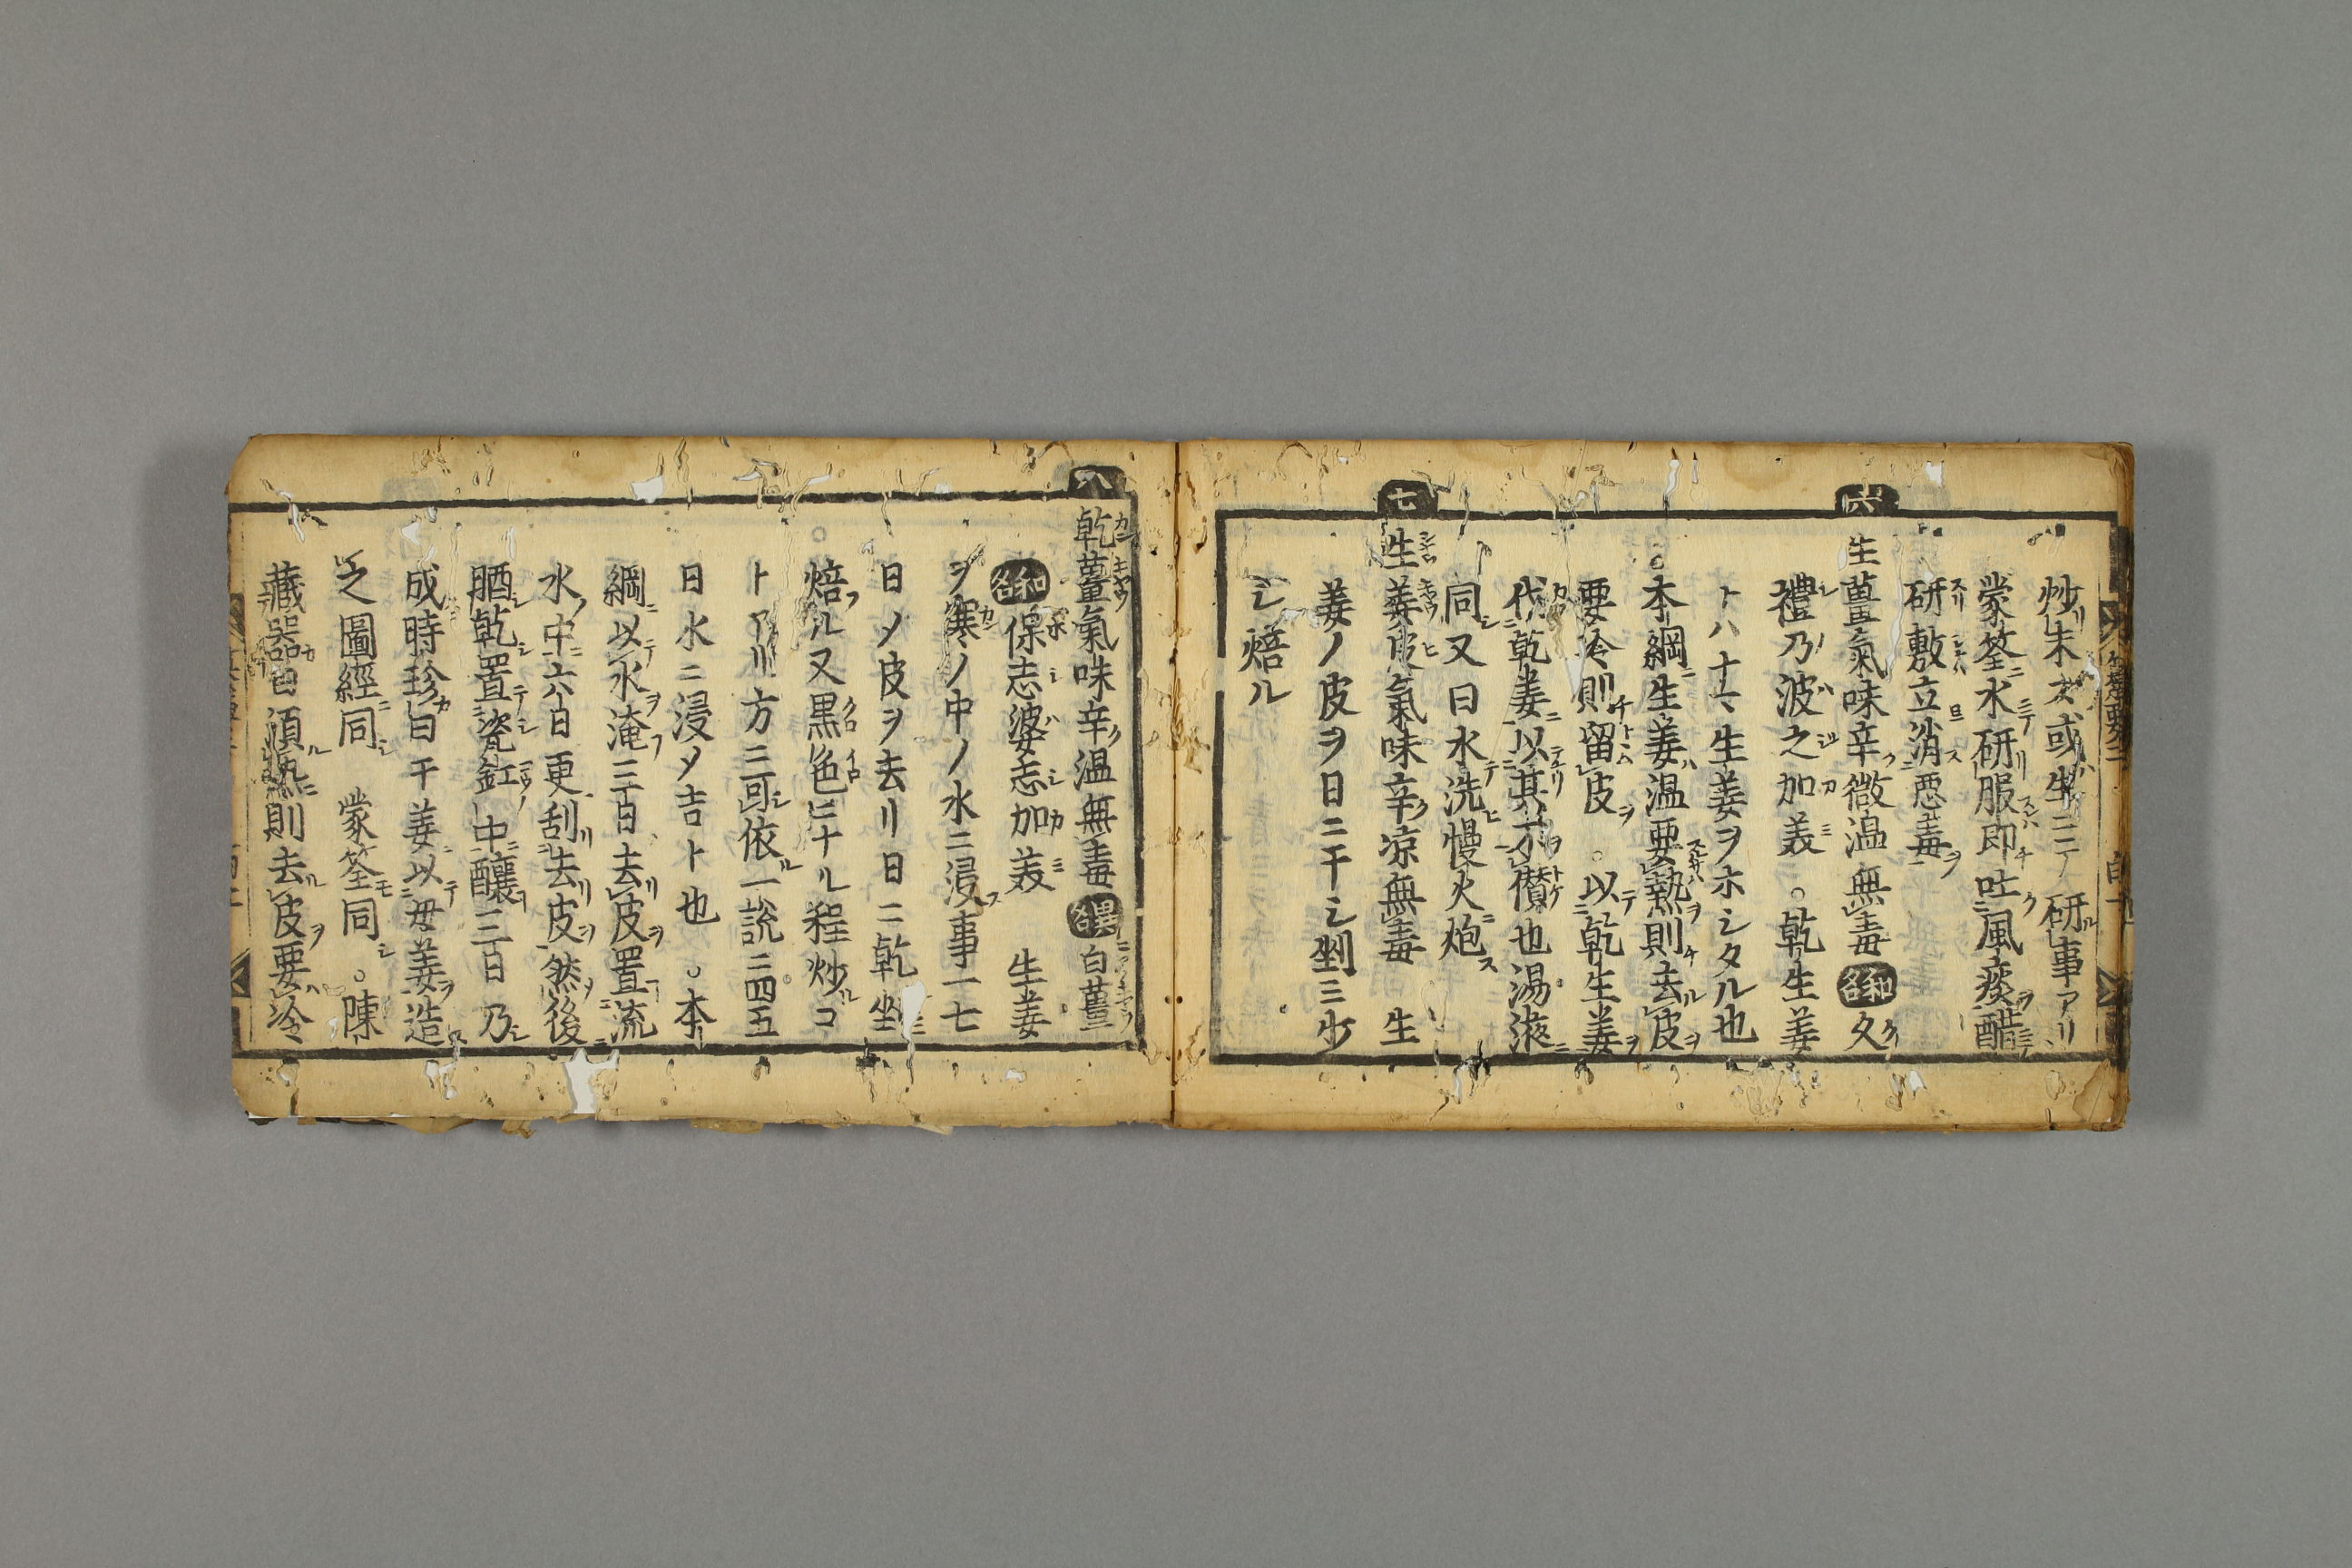 炒朱亥或生ニテ研事アリ
蒙筌水研服即吐風痰醋
研敷立消惡毒
六
生薑氣味辛微温無毒和名久
禮乃波之加美○乾生姜
トハ十六生姜ヲホシタル也
○本綱生姜温要熱則去皮
要冷則留皮○以乾生姜
代乾姜以其不僣也湯液
同又曰水洗慢火炮
七
生姜皮氣味辛凉無毒 生
姜ノ皮ヲ日ニ干シ剉三少
シ焙ル
八
乾薑氣味辛温無毒異名白薑
和名保志婆志加美 生姜
ヲ寒ノ中ノ水ニ浸事一七
日〆皮ヲ去リ日ニ乾
○焙ル又黒色ニナル程炒コ
トアリ方ニ可依一説ニ四五
日水ニ浸〆吉ト也○本
綱以水淹三百去皮置流
水中六日更刮去皮然後
晒乾置瓷缸中釀三日乃
成時珍曰干姜以母姜造
之圖經同 蒙筌同○陳
藏器曰須熱則去皮要冷